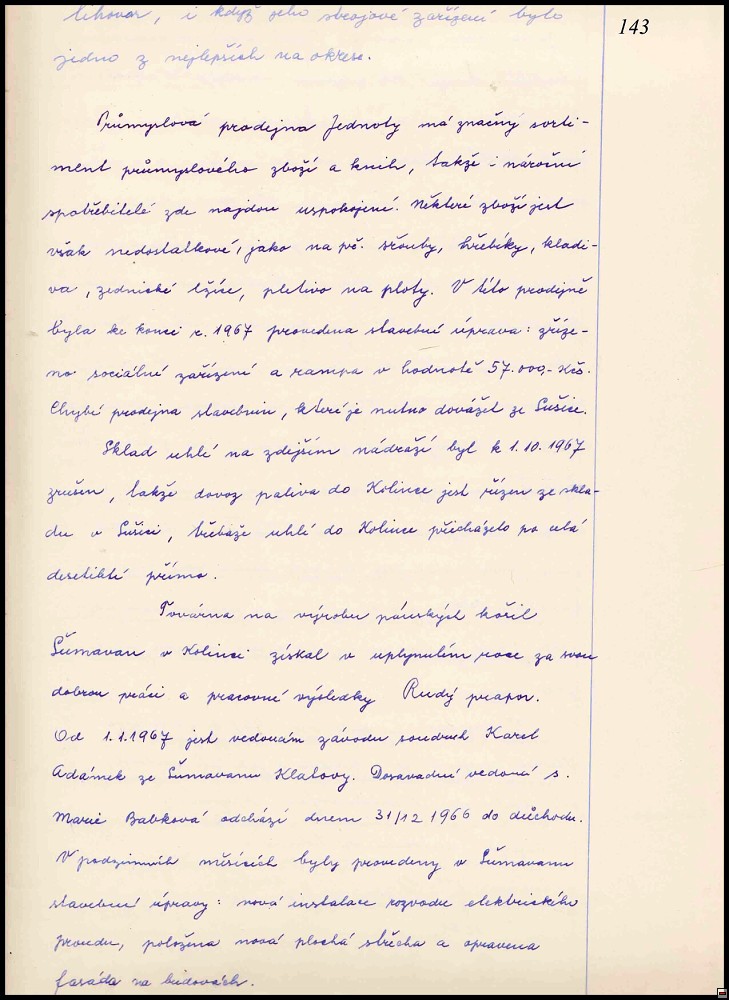 lihovar, i když jeho strojové zařízení bylo
143
jedno z nejlepších na okrese.
Průmyslová prodejna Jednoty má značný sorti-
ment průmyslového zboží a knih, takže i nároční
spotřebitelé zde najdou uspokojení. Některé zboží jest
však nedostatkové, jako na př. šrouby, hřebíky, kladi-
va, zednické lžíce, pletivo na ploty. V této prodejně
byla ke konci r. 1967 provedena stavební úprava: zříze-
no sociální zařízení a rampa v hodnotě 57.000,- Kčs.
Chybí prodejna stavebnin, které je nutno dovážet ze Sušice.
Sklad uhlí na zdejším nádraží byl k 1.10.1967
zrušen, takže dovoz paliva do Kolince jest řízen ze skla-
du v Sušici, třebaže uhlí do Kolince přicházelo po celá
desetiletí přímo.
Továrna na výrobu pánských košil
Šumavan v Kolinci získal v uplynulém roce za svou
dobrou práci a pracovní výsledky Rudý prapor.
Od 1.1.1967 jest vedoucím závodu soudruh Karel
Adámek ze Šumavanu Klatovy. Dosavadní vedoucí s.
Marie Babková odchází dnem 31/12 1966 do důchodu.
V podzimních měsících byly provedeny v Šumavanu
stavební úpravy: nová instalace rozvodu elektrického
proudu, položena nová plochá střecha a opravena
fasáda na budovách.